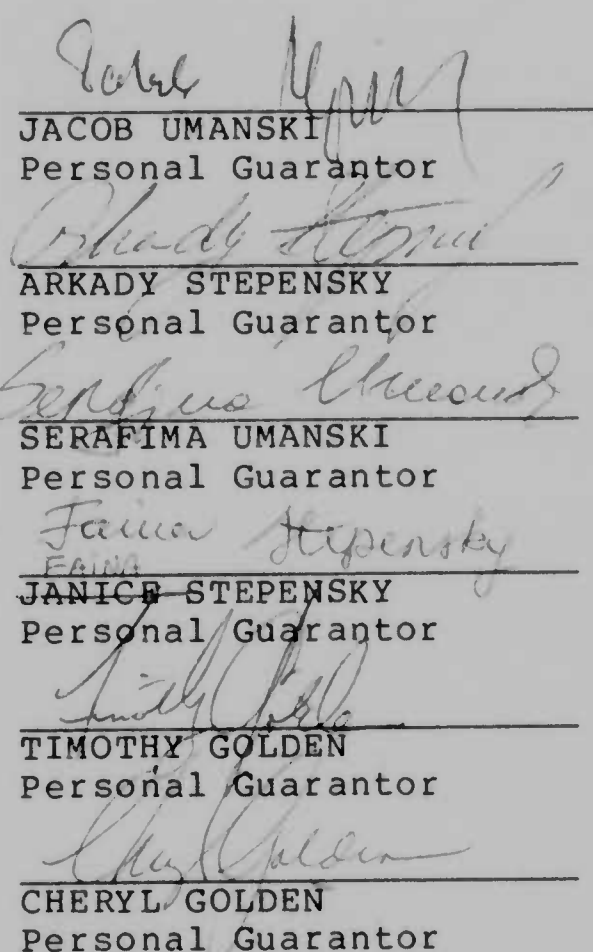 JACOB UMANSKI
Personal Guarantor
Arkady
ARKADY STEPENSKY
Personal Guarantor
SERAFIMA UMANSKI
Personal Guarantor
Faina Stepensky
FAINA
JANICE STEPENSKY
Personal Guarantor
Timothy
TIMOTHY GOLDEN
Personal Guarantor
Cheryl Golden
CHERYL GOLDEN
Personal Guarantor